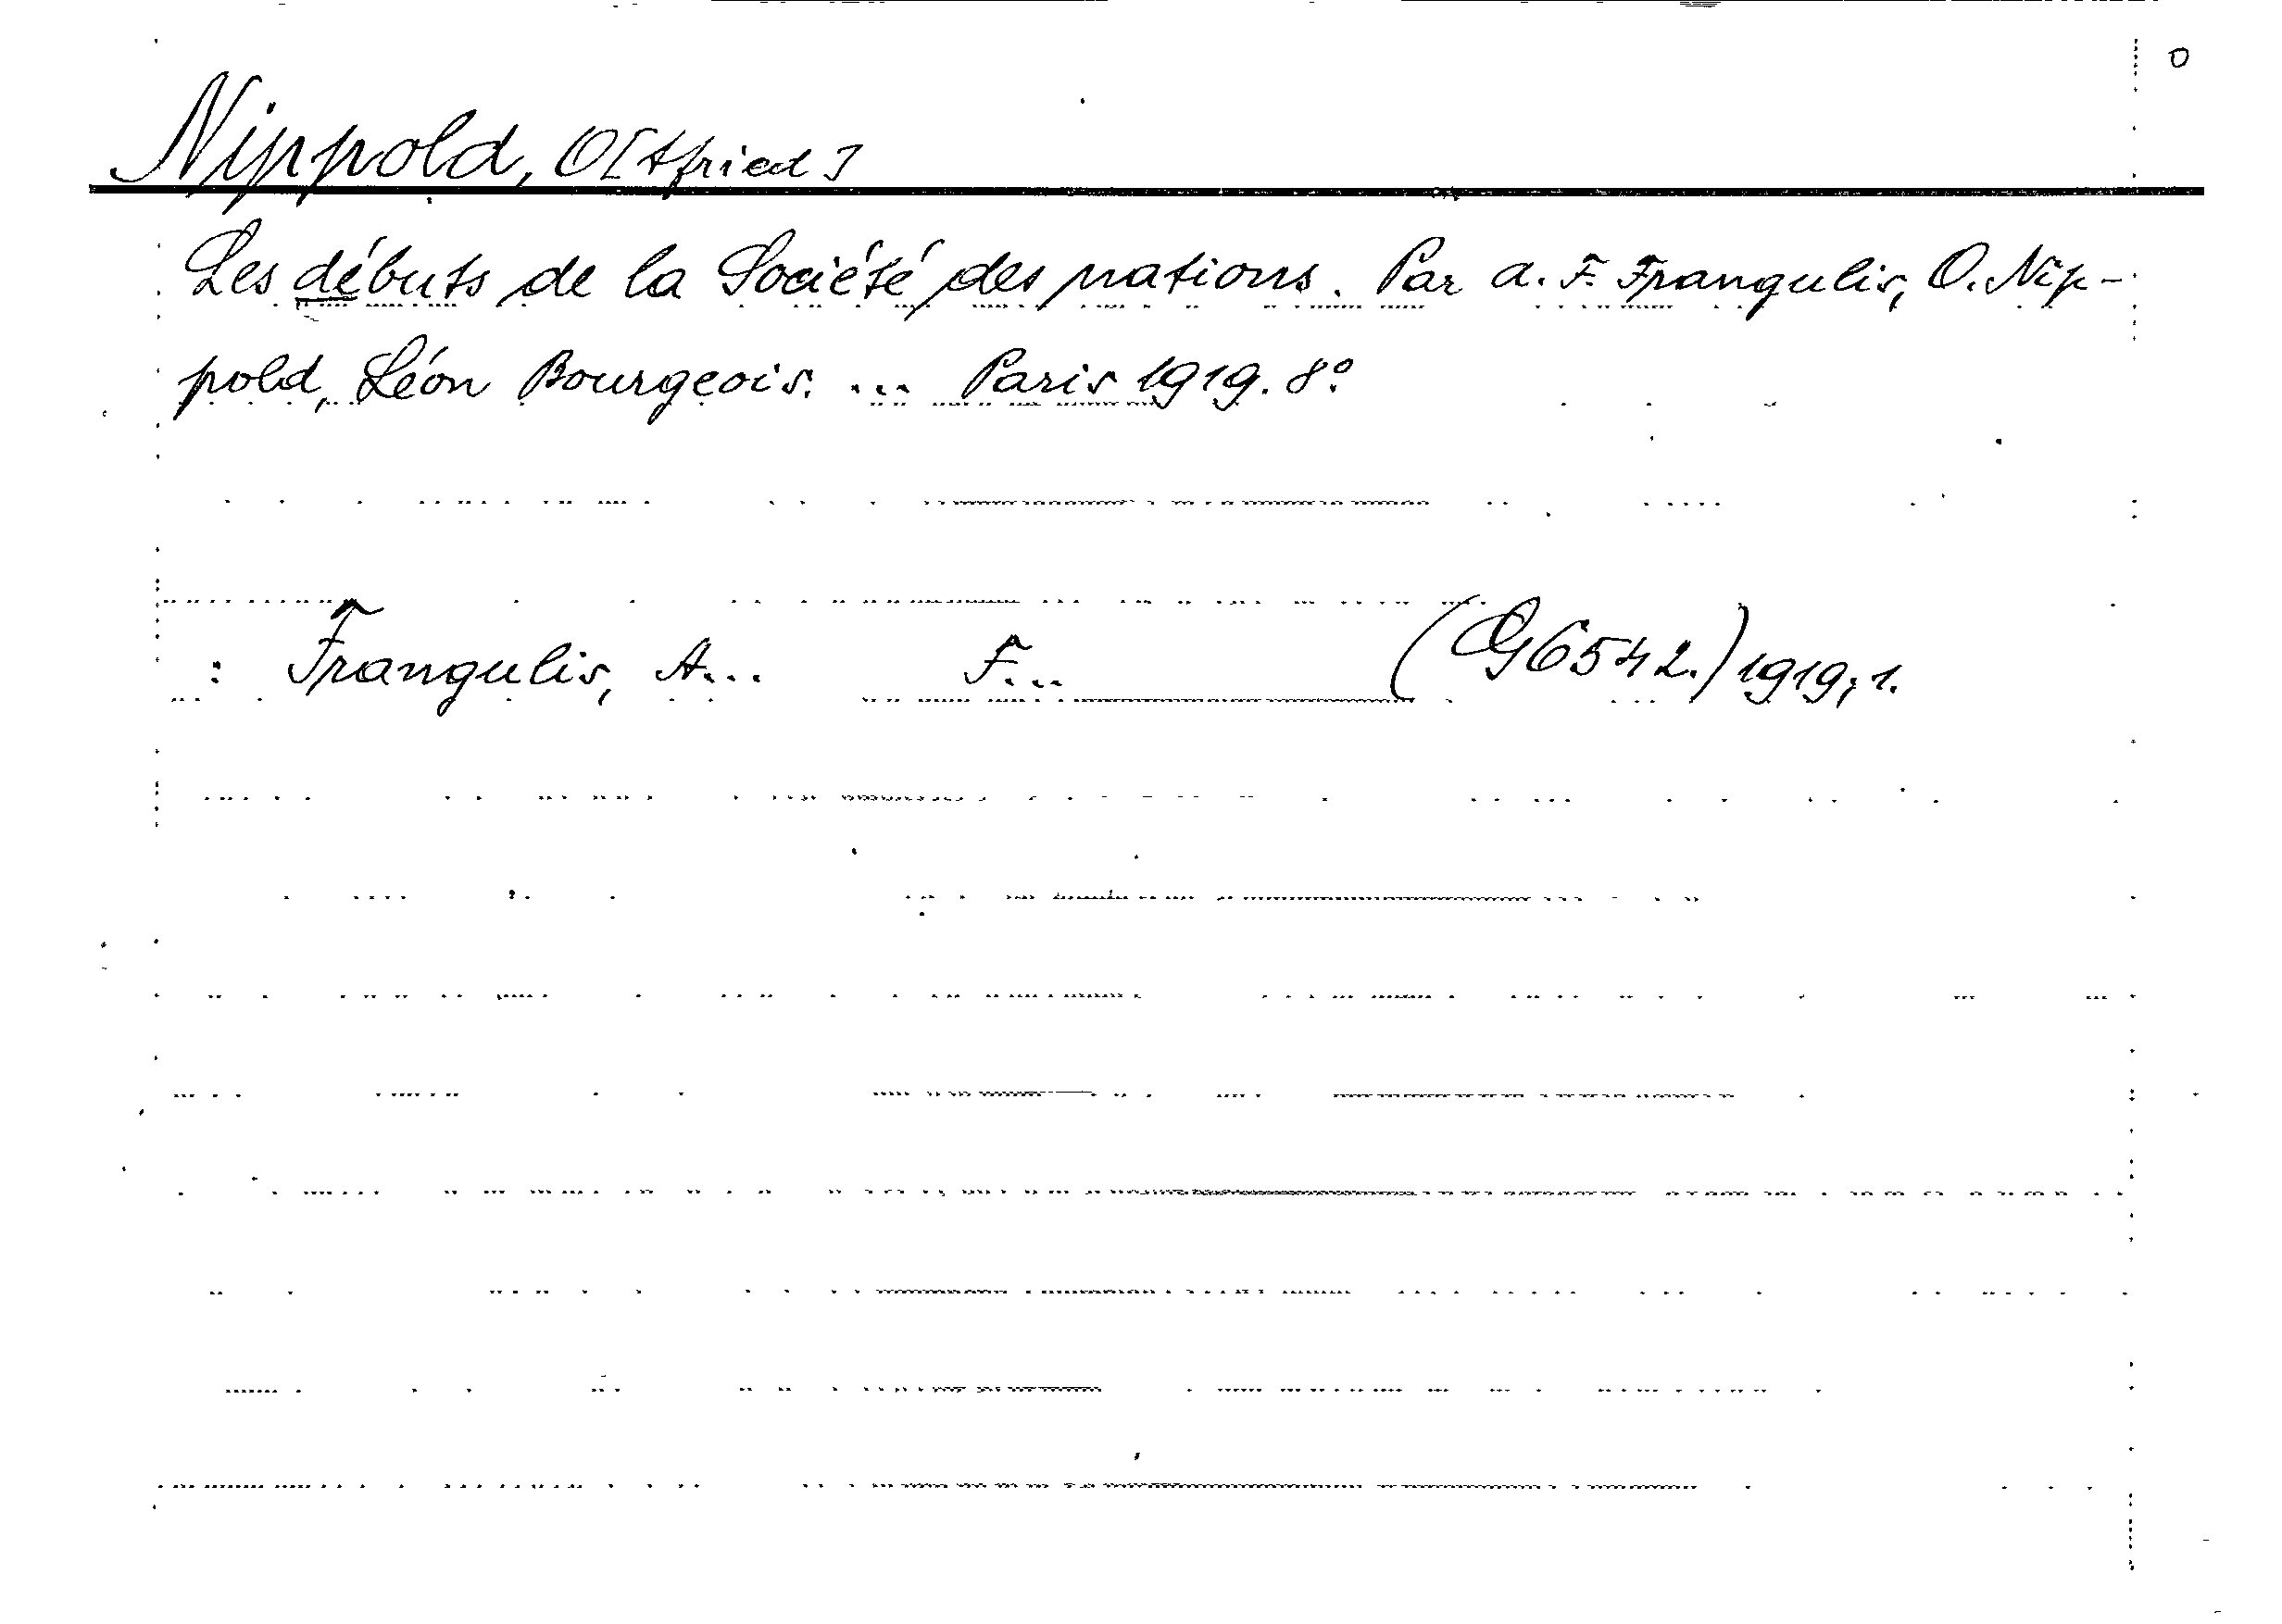 0
Nippold, O[tfried]
Les débuts de la Société des nations. Par A. F. Frangulis, O. Nip-
pold, Léon Bourgeois. ... Paris 1919. 8°
: Frangulis, A... F... (G6542.) 1919; 1.